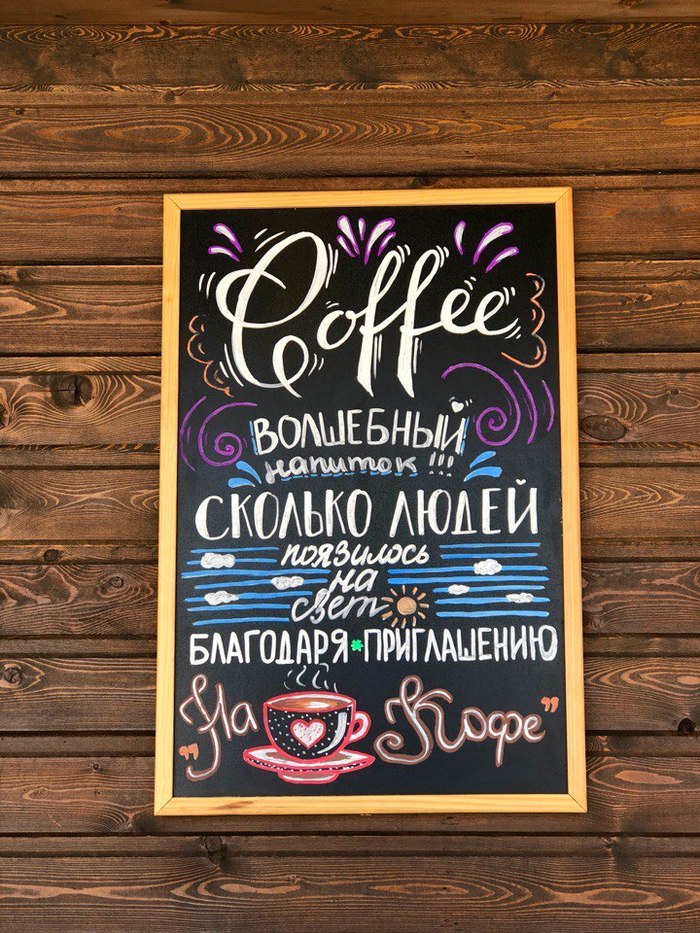 Coffee
ВОЛШЕБНЫЙ
напиток !!!
СКОЛЬКО ЛЮДЕЙ
появилось
на
свет
БЛАГОДАРЯ ПРИГЛАШЕНИЮ
"На Кофе"